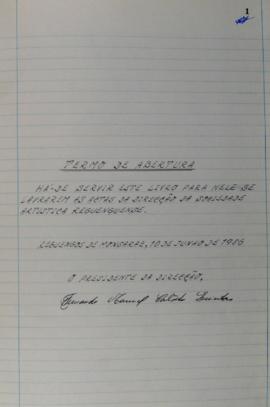 1
TERMO DE ABERTURA
HÁ-DE SERVIR ESTE LIVRO PARA NELE SE
LAVRAREM AS ACTAS DA DIRECÇÃO DA SOCIEDADE
ARTÍSTICA REGUENGUENSE.
REGUENGOS DE MONSARAZ, 10 DE JUNHO DE 1986
O PRESIDENTE DA DIRECÇÃO,
Fernando Manuel